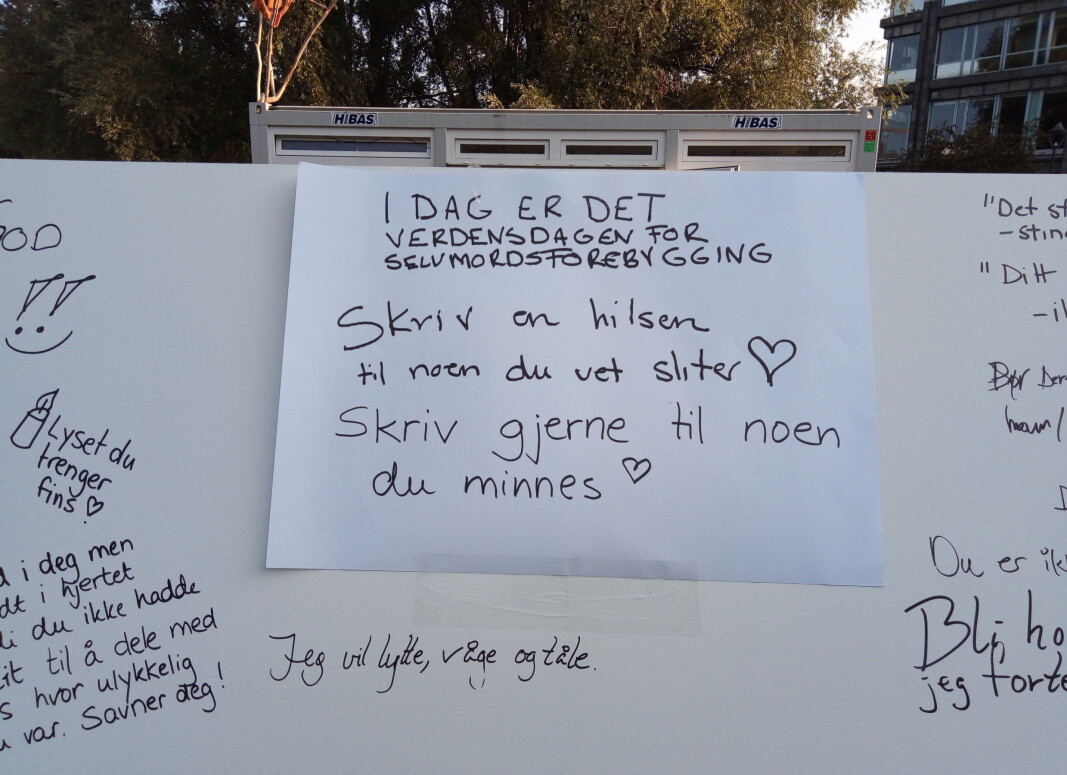 HIBAS
HIBAS
I DAG ER DET
VERDENSDAGEN FOR
SELVMORDSFOREBYGGING
Skriv en hilsen
til noen du vet sliter
Skriv gjerne til noen
du minnes
Lyset du
trenger
fins
i deg men
i hjertet
du ikke hadde
til å dele med
hvor ulykkelig
var. Savner deg!
Jeg vil lytte, våge og tåle.
"Det
"Ditt
Du er
Bli
jeg